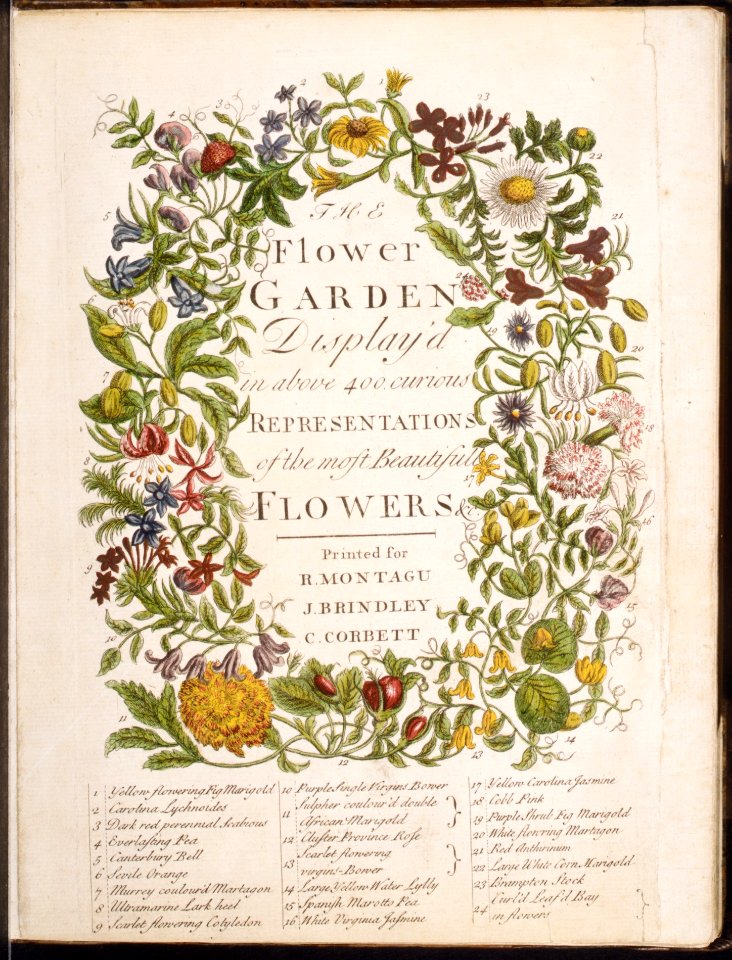 THE
Flower
GARDEN
Display'd
in above 400 curious
REPRESENTATIONS
of the most Beautifull
FLOWERS &c
Printed for
R. MONTAGU
J. BRINDLEY
C. CORBETT
1 Yellow flowering Fig Marigold
2 Carolina Lychnoides
3 Dark red perennial Scabious
4 Everlasting Pea
5 Canterbury Bell
6 Sevile Orange
7 Murrey coulour'd Martagon
8 Ultramarine Lark heel
9 Scarlet flowering Cotyledon
10 Purple Single Virgins Bower
11 Sulpher coulour'd double
African Marigold
12 Cluster Province Rose
13 Scarlet flowering
virgins-Bower
14 Large Yellow Water Lylly
15 Spanish Marotto Pea
16 White Virginia Jasmine
17 Yellow Carolina Jasmine
18 Cobb Pink
19 Purple Shrub Fig Marigold
20 White flowring Martagon
21 Red Anthirinum
22 Large White Corn Marigold
23 Brampton Stock
24 Curl'd Leaf'd Bay
in flowers